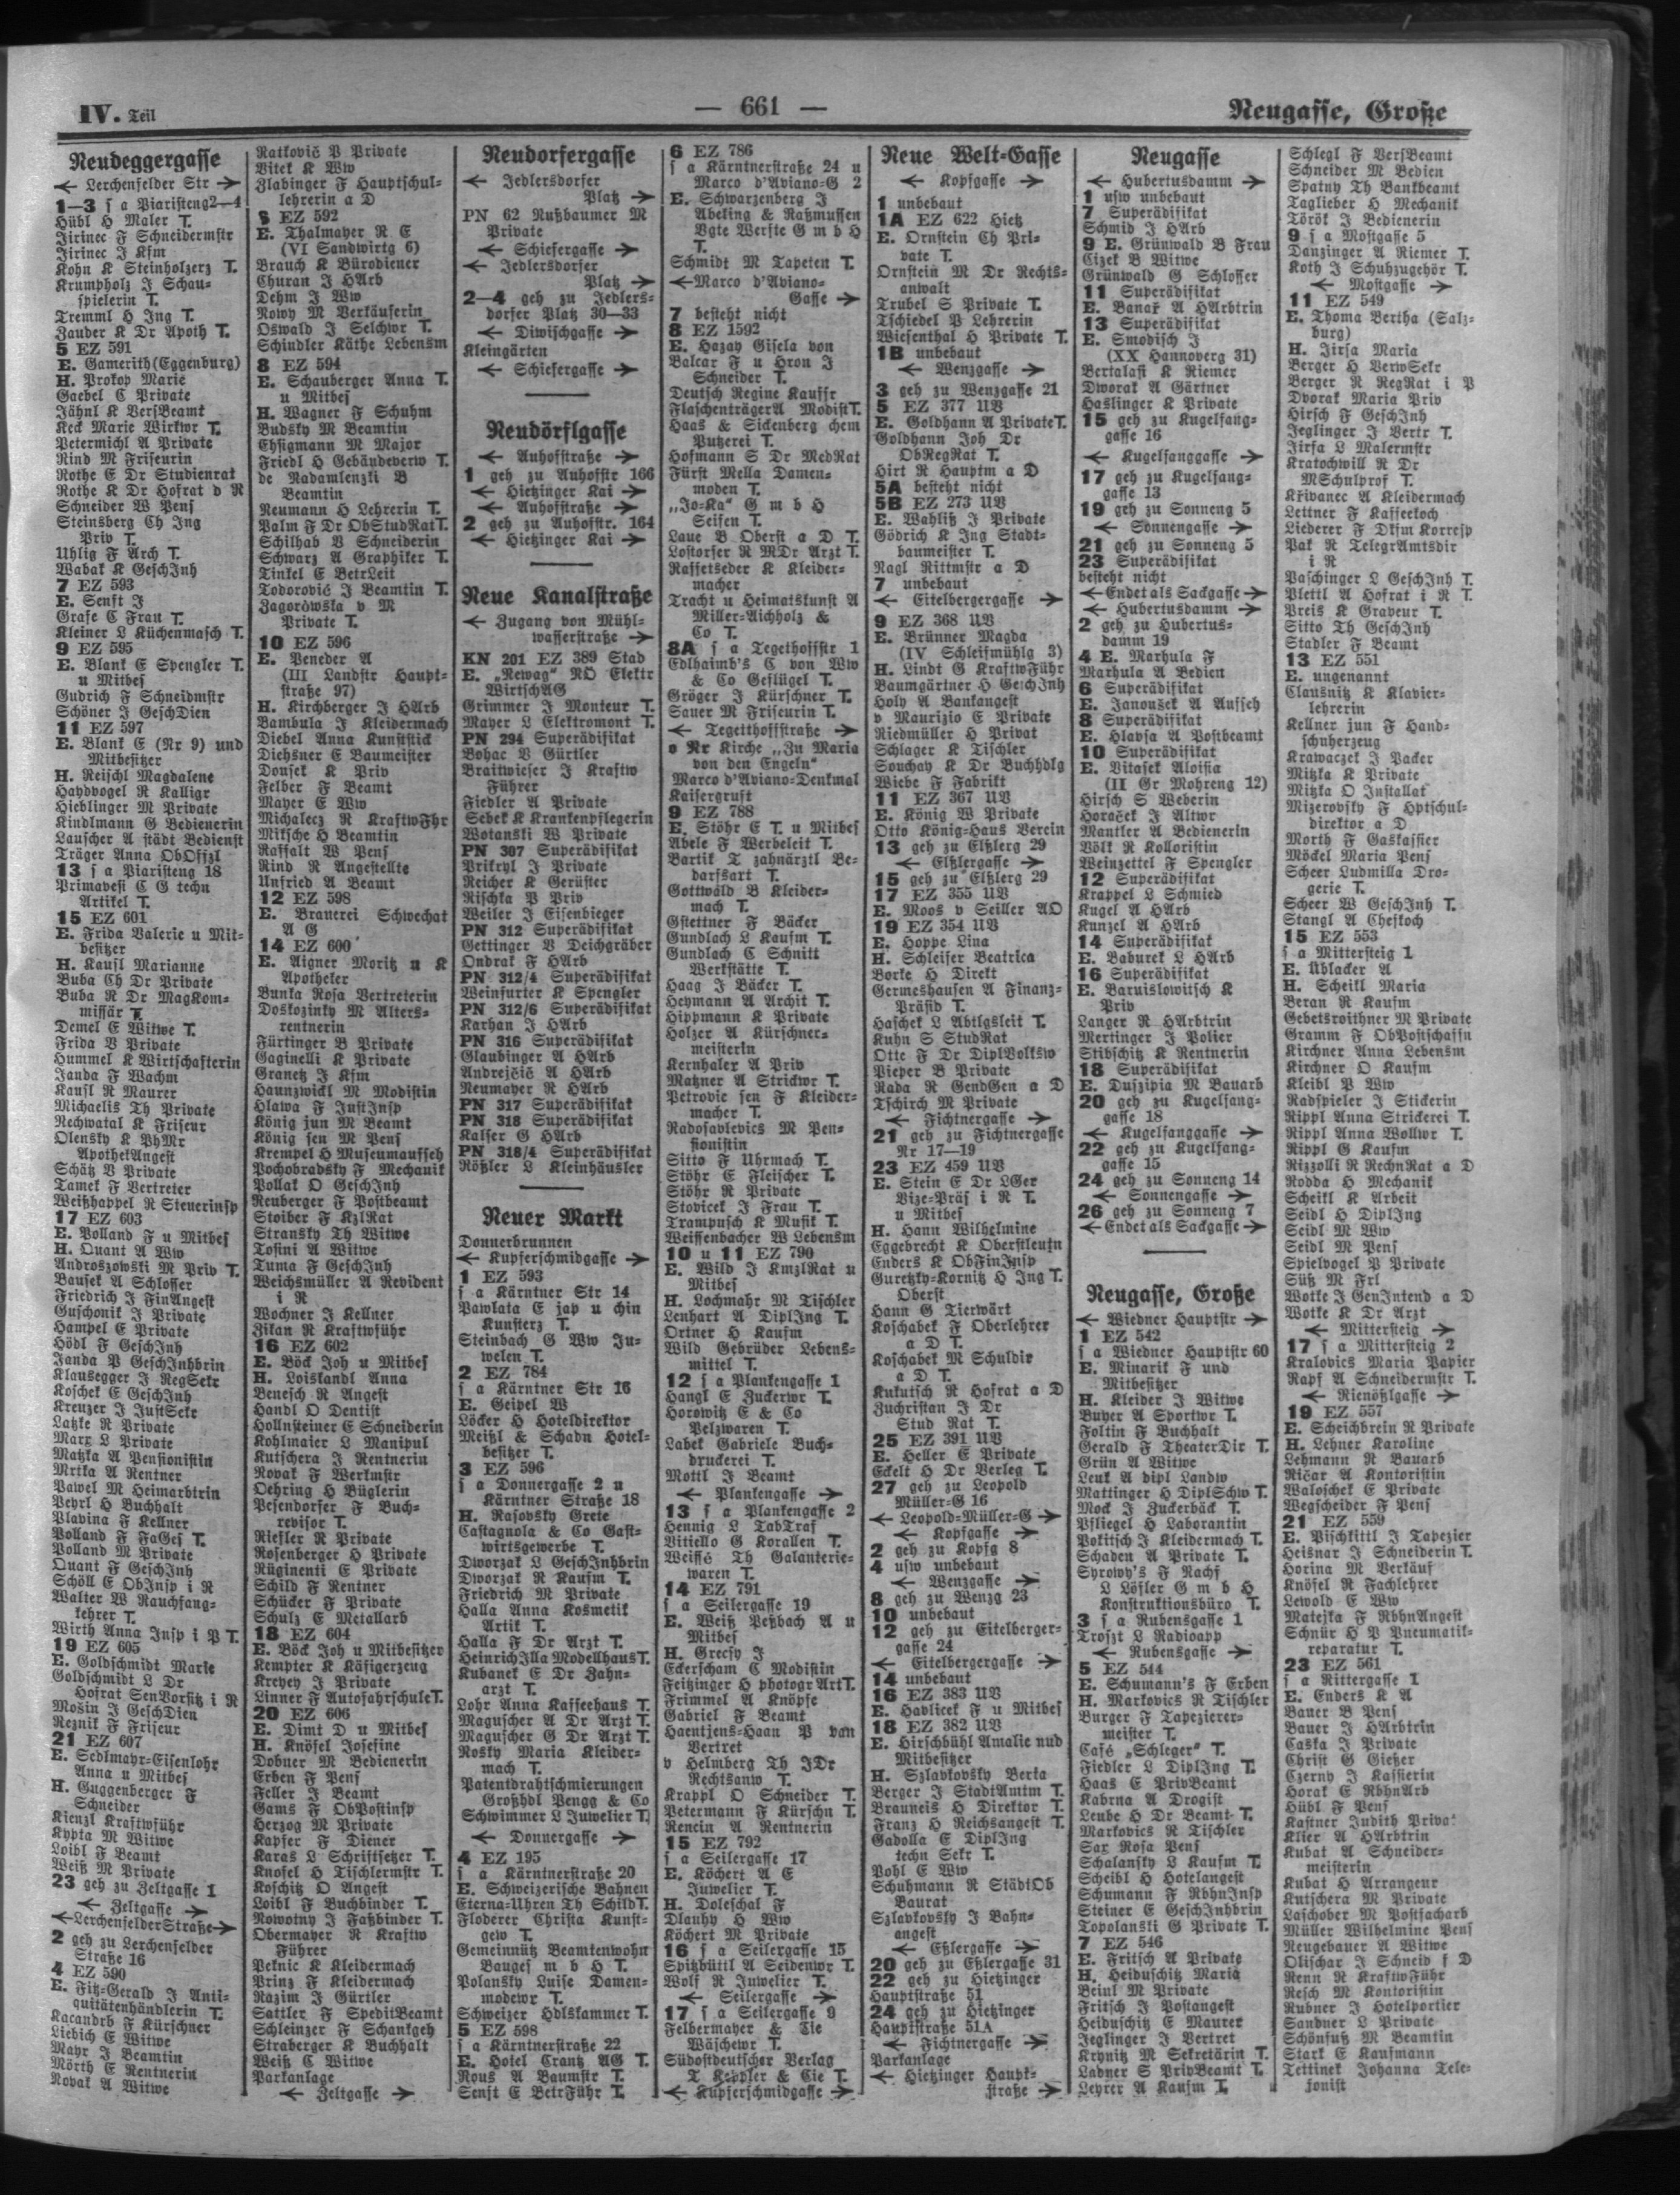 IV. Teil
— 661 —
Neugasse, Große
Neudeggergasse
← Lerchenfelder Str →
1—3 s a Piaristeng 2—4
Hübl H Maler T.
Jirinec F Schneidermstr
Jirinec J Kfm
Kohn K Steinholzerz T.
Krumpholz J Schau-
spielerin T.
Tremml H Ing T.
Zauder K Dr Apoth T.
5 EZ 591
E. Gamerith (Eggenburg)
H. Prokop Marie
Gaebel C Private
Jähnl K VersBeamt
Keck Marie Wirkwr T.
Petermichl A Private
Rind M Friseurin
Rothe E Dr Studienrat
Rothe K Dr Hofrat d R
Schneider W Pens
Steinsberg Ch Ing
Priv T.
Uhlig F Arch T.
Wabak K GeschInh
7 EZ 593
E. Senft J
Grafe C Frau T.
Kleiner L Küchenmasch T.
9 EZ 595
E. Blank E Spengler T.
u Mitbes
Gudrich F Schneidmstr
Schöner J GeschDien
11 EZ 597
E. Blank E (Nr 9) und
Mitbesitzer
H. Reischl Magdalene
Haydvogel R Kalligr
Hieblinger M Private
Kindlmann G Bedienerin
Lauscher A städt Bedienst
Träger Anna ObOfizl
13 s a Piaristeng 18
Primavesi C G techn
Artikel T.
15 EZ 601
E. Frida Valerie u Mit-
besitzer
H. Kaufl Marianne
Buba Ch Dr Private
Buba R Dr MagKom-
missär T.
Demel E Witwe T.
Frida V Private
Hummel K Wirtschafterin
Janda F Wachm
Kaufl R Maurer
Michaelis Th Private
Nechwatal K Friseur
Olensky K PhMr
ApothekAngest
Schätz V Private
Tamek F Vertreter
Weißhappel R Steuerinsp
17 EZ 603
E. Polland F u Mitbes
H. Quant A Ww
Androszowski M Priv T.
Bausek A Schlosser
Friedrich J FinAngest
Guschonik J Private
Hampel E Private
Hödl F GeschInh
Janda P GeschInhbrin
Klausegger J RegSekr
Koschek E GeschInh
Kreuzer J JustSekr
Latzke R Private
Marx L Private
Matzka A Pensionistin
Mrtka A Rentner
Pawel M Heimarbtrin
Peyrl H Buchhalt
Plavina F Kellner
Polland F FaGes T.
Polland M Private
Quant F GeschInh
Schöll E ObInsp i R
Walter W Rauchfang-
kehrer T.
Wirth Anna Insp i P T.
19 EZ 605
E. Goldschmidt Marie
Goldschmidt L Dr
Hofrat SenVorsitz i R
Mosin J GeschDien
Reznik F Friseur
21 EZ 607
E. Sedlmayr-Eisenlohr
Anna u Mitbes
H. Guggenberger F
Schneider
Kienzl Kraftwführ
Kypta M Witwe
Loibl F Beamt
Weiß M Private
23 geh zu Zeltgasse 1
← Zeltgasse →
← Lerchenfelder Straße →
2 geh zu Lerchenfelder
Straße 16
4 EZ 590
E. Fitz-Gerald J Anti-
quitätenhändlerin T.
Kacandrb F Kürschner
Liebich E Witwe
Mayr J Beamtin
Mörth E Rentnerin
Novak A Witwe
Ratkovič P Private
Vitek K Ww
Zlabinger F Hauptschul-
lehrerin a D
6 EZ 592
E. Thalmayer R E
(VI Sandwirtg 6)
Brauch K Bürodiener
Churan J HArb
Dehm J Ww
Nowy M Verkäuferin
Oswald J Selchwr T.
Schindler Käthe Lebensm
8 EZ 594
E. Schauberger Anna T.
u Mitbes
H. Wagner F Schuhm
Budsky M Beamtin
Ehsigmann M Major
Friedl H Gebäudeverw T.
de Nadamlenzki B
Beamtin
Neumann H Lehrerin T.
Palm F Dr ObStudRat T.
Schilhab V Schneiderin
Schwarz A Graphiker T.
Tinkel E BetrLeit
Todorovič J Beamtin T.
Zagorówska v M
Private T.
10 EZ 596
E. Peneder A
(III Landstr Haupt-
straße 97)
H. Kirchberger J HArb
Bambula J Kleidermach
Diebel Anna Kunststick
Diehsner E Baumeister
Dousek K Priv
Felber F Beamt
Mayer E Ww
Michalecz R KraftwFhr
Miksche H Beamtin
Raffalt W Pens
Rind R Angestellte
Unfried A Beamt
12 EZ 598
E. Brauerei Schwechat
A G
14 EZ 600
E. Aigner Moritz u K
Apotheker
Bunka Rosa Vertreterin
Doskozinky M Alters-
rentnerin
Fürtinger B Private
Gaginelli K Private
Granetz J Kfm
Haunzwickl M Modistin
Hlawa F JustInsp
König jun M Beamt
König sen M Pens
Krempel H Museumaufseh
Pochobradsky F Mechanik
Pollak O GeschInh
Reuberger F Postbeamt
Stoiber F KzlRat
Stransky Th Witwe
Tosini A Witwe
Tuma F GeschInh
Weichsmüller A Revident
i R
Wochner J Kellner
Zikan R Kraftwführ
16 EZ 602
E. Böck Joh u Mitbes
H. Loiskandl Anna
Benesch R Angest
Handl O Dentist
Hollnsteiner E Schneiderin
Kohlmaier L Manipul
Kutschera J Rentnerin
Novak F Werkmstr
Oehring H Büglerin
Pesendorfer F Buch-
revisor T.
Riesler R Private
Rosenberger H Private
Rüginenti E Private
Schild F Rentner
Schücker F Private
Schulz E Metallarb
18 EZ 604
E. Böck Joh u Mitbesitzer
Kempter K Käfigerzeug
Kreyey J Private
Linner F Autofahrschule T.
20 EZ 606
E. Dimt D u Mitbes
H. Knöfel Josefine
Dobner M Bedienerin
Erben F Pens
Feller J Beamt
Gams F ObPostinsp
Herzog M Private
Kapfer F Diener
Karas L Schriftsetzer T.
Knofel H Tischlermstr T.
Koschitz O Angest
Loibl F Buchbinder T.
Nowotny J Faßbinder T.
Obermayer R Kraftw
Führer
Peknic K Kleidermach
Prinz F Kleidermach
Razim J Gürtler
Sattler F SpeditBeamt
Schleinzer F Schankgeh
Straberger K Buchhalt
Weiß C Witwe
Parkanlage
← Zeltgasse →
Neudorfergasse
← Jedlersdorfer
Platz →
PN 62 Nußbaumer M
Private
← Schiefergasse →
← Jedlersdorfer
Platz →
2—4 geh zu Jedlers-
dorfer Platz 30—33
← Diwischgasse →
Kleingärten
← Schiefergasse →
Neudörflgasse
← Auhofstraße →
1 geh zu Auhofstr 166
← Hietzinger Kai →
← Auhofstraße →
2 geh zu Auhofstr. 164
← Hietzinger Kai →
Neue Kanalstraße
← Zugang von Mühl-
wasserstraße →
KN 201 EZ 389 Stad
E. „Newag“ NÖ Elektr
WirtschAG
Grimmer J Monteur T.
Mayer L Elektromont T.
PN 294 Superädifikat
Bohac V Gürtler
Braitwieser J Kraftw
Führer
Fiedler A Private
Sebek K Krankenpflegerin
Wotanski W Private
PN 307 Superädifikat
Prikryl J Private
Reicher K Gerüster
Rischka P Priv
Weiler J Eisenbieger
PN 312 Superädifikat
Gettinger V Deichgräber
Ondrak F HArb
PN 312/4 Superädifikat
Weinfurter K Spengler
PN 312/6 Superädifikat
Karhan J HArb
PN 316 Superädifikat
Glaubinger A HArb
Andrejčič A HArb
Neumayer R HArb
PN 317 Superädifikat
PN 318 Superädifikat
Kaiser G HArb
PN 318/4 Superädifikat
Rößler L Kleinhäusler
Neuer Markt
Donnerbrunnen
← Kupferschmidgasse →
1 EZ 593
s a Kärntner Str 14
Pawlata E jap u chin
Kunsterz T.
Steinbach G Ww Ju-
welen T.
2 EZ 784
s a Kärntner Str 16
E. Geipel W
Löcker H Hoteldirektor
Meißl & Schadn Hotel-
besitzer T.
3 EZ 596
s a Donnergasse 2 u
Kärntner Straße 18
H. Rasovsky Grete
Castagnola & Co Gast-
wirtsgewerbe T.
Dworzak L GeschInhbrin
Dworzak R Kaufm T.
Friedrich M Private
Halla Anna Kosmetik
Artik T.
Halla F Dr Arzt T.
Heinrich Illa Modellhaus T.
Kubanek E Dr Zahn-
arzt T.
Lohr Anna Kaffeehaus T.
Maguscher A Dr Arzt T.
Maguscher G Dr Arzt T.
Nosky Maria Kleider-
mach T.
Patentdrahtschmierungen
Großhdl Pengg & Co
Schwimmer L Juwelier T.
← Donnergasse →
4 EZ 195
s a Kärntnerstraße 20
E. Schweizerische Bahnen
Eterna-Uhren Th Schild T.
Floderer Christa Kunst-
gew T.
Gemeinnütz Beamtenwohn
Bauges m b H T.
Polansky Luise Damen-
modewr T.
Schweizer Hdlskammer T.
5 EZ 598
s a Kärntnerstraße 22
E. Hotel Crantz AG T.
Nous A Baumstr T.
Senft E BetrFühr T.
6 EZ 786
s a Kärntnerstraße 24 u
Marco d'Aviano-G 2
E. Schwarzenberg J
Abeking & Raßmussen
Vgte Werfte G m b H
T.
Schmidt M Tapeten T.
← Marco d'Aviano-
Gasse →
7 besteht nicht
8 EZ 1592
E. Hazay Gisela von
Balcar F u Hron J
Schneider T.
Deutsch Regine Kauffr
Flaschenträger A Modist T.
Haas & Sickenberg chem
Putzerei T.
Hofmann S Dr MedRat
Fürst Mella Damen-
moden T.
„Jo-Ka“ G m b H
Seifen T.
Laue B Oberst a D T.
Lostorfer R MDr Arzt T.
Raffetseder K Kleider-
macher
Tracht u Heimatskunst A
Miller-Aichholz &
Co T.
8A s a Tegethoffstr 1
Edlhaimb's C von Ww
& Co Geflügel T.
Gröger J Kürschner T.
Sauer M Friseurin T.
← Tegetthoffstraße →
o Nr Kirche „Zu Maria
von den Engeln“
Marco d'Aviano-Denkmal
Kaisergruft
9 EZ 788
E. Stöhr E T. u Mitbes
Abele F Werbeleit T.
Bartik T zahnärztl Be-
darfsart T.
Gottwald B Kleider-
mach T.
Gstettner F Bäcker
Gundlach L Kaufm T.
Gundlach C Schnitt
Werkstätte T.
Haag J Bäcker T.
Heymann A Archit T.
Hippmann K Private
Holzer A Kürschner-
meisterin
Kernhaler A Priv
Matzner A Strickwr T.
Petrovic sen F Kleider-
macher T.
Radosavlevics M Pen-
sionistin
Sitto F Uhrmach T.
Stöhr E Fleischer T.
Stöhr R Private
Stovicek J Frau T.
Trampusch K Musik T.
Weissenbacher W Lebensm
10 u 11 EZ 790
E. Wild J KmzlRat u
Mitbes
H. Lochmahr M Tischler
Lenhart A DiplIng T.
Ortner H Kaufm
Wild Gebrüder Lebens-
mittel T.
12 s a Plankengasse 1
Hangl E Zuckerwr T.
Horowitz E & Co
Pelzwaren T.
Labek Gabriele Buch-
druckerei T.
Mottl J Beamt
← Plankengasse →
13 s a Plankengasse 2
Hennig L TabTraf
Vitiello G Korallen T.
Weiffé Th Galanterie-
waren T.
14 EZ 791
s a Seilergasse 19
E. Weiß Peßbach A u
Mitbes
H. Grecsy J
Eckerscham C Modistin
Feitzinger H photogr Art T.
Frimmel A Knöpfe
Gabriel F Beamt
Haentjens-Haan P van
Vertret
v Helmberg Th JDr
Rechtsanw T.
Krappl O Schneider T.
Petermann F Kürschn T.
Rencin A Rentnerin
15 EZ 792
s a Seilergasse 17
E. Köchert A E
Juwelier T.
H. Doleschal F
Dlauhy H Ww
Köchert M Private
16 s a Seilergasse 15
Spitzbüttl A Seidenwr T.
Wolf R Juwelier T.
← Seilergasse →
17 s a Seilergasse 9
Felbermayer & Cie
Wäschewr T.
Südostdeutscher Verlag
T Keppler & Cie T.
← Kupferschmidgasse →
Neue Welt-Gasse
← Kopfgasse →
1 unbebaut
1A EZ 622 Hietz
E. Ornstein Ch Pri-
vate T.
Ornstein M Dr Rechts-
anwalt
Trubel S Private T.
Tschiedel P Lehrerin
Wiesenthal H Private T.
1B unbebaut
← Wenzgasse →
3 geh zu Wenzgasse 21
5 EZ 377 UV
E. Goldhann A Private T.
Goldhann Joh Dr
ObRegRat T.
Hirt R Hauptm a D
5A besteht nicht
5B EZ 273 UV
E. Wahliß J Private
Gödrich K Ing Stadt-
baumeister T.
Nagl Rittmstr a D
7 unbebaut
← Eitelbergergasse →
9 EZ 368 UV
E. Brünner Magda
(IV Schleifmühlg 3)
H. Lindt G KraftwFühr
Baumgärtner H GeschInh
Holy A Bankangest
v Maurizio E Private
Riedmüller H Privat
Schlager K Tischler
Souchay K Dr Buchhdlg
Wiebe F Fabrikt
11 EZ 367 UV
E. König W Private
Otto König-Haus Verein
13 geh zu Elßlerg 29
← Elßlergasse →
15 geh zu Elßlerg 29
17 EZ 355 UV
E. Moos v Seiller AÖ
19 EZ 354 UV
E. Hoppe Lina
H. Schleifer Beatrica
Borke H Direkt
Germeshausen A Finanz-
Präsid T.
Haschek L Abtlgsleit T.
Kuhn S StudRat
Otte F Dr DiplVolksw
Pieper B Private
Rada R GendGen a D
Tschirch M Private
← Fichtnergasse →
21 geh zu Fichtnergasse
Nr 17—19
23 EZ 459 UV
E. Stein E Dr LGer
Vize-Präs i R T.
u Mitbes
H. Hann Wilhelmine
Eggebrecht K Oberstleutn
Enders K ObFinInsp
Guretzky-Kornitz H Ing T.
Oberst
Hann G Tierwärt
Koschabek F Oberlehrer
a D T.
Koschabek M Schuldir
a D T.
Kukutsch R Hofrat a D
Zuchristan J Dr
Stud Rat T.
25 EZ 391 UV
E. Heller E Private
Eckelt H Dr Verleg T.
27 geh zu Leopold
Müller-G 16
← Leopold-Müller-G →
← Kopfgasse →
2 geh zu Kopfg 8
4 usw unbebaut
← Wenzgasse →
8 geh zu Wenzg 23
10 unbebaut
12 geh zu Eitelberger-
gasse 24
← Eitelbergergasse →
14 unbebaut
16 EZ 383 UV
E. Havlicek F u Mitbes
18 EZ 382 UV
E. Hirschbühl Amalie nud
Mitbesitzer
H. Szlavkovsky Berta
Berger J StadtAmtm T.
Brauneis H Direktor T.
Franz H Reichsangest T.
Gadolla E DiplIng
techn Sekr T.
Pohl E Ww
Schuhmann R StädtOb
Baurat
Szlavkovsky J Bahn-
angest
← Eßlergasse →
20 geh zu Eßlergasse 31
22 geh zu Hietzinger
Hauptstraße 51
24 geh zu Hietzinger
Hauptstraße 51A
← Fichtnergasse →
Parkanlage
← Hietzinger Haupt-
straße →
Neugasse
← Hubertusdamm →
1 usw unbebaut
7 Superädifikat
Schmid J HArb
9 E. Grünwald B Frau
Cizek B Witwe
Grünwald G Schlosser
11 Superädifikat
E. Banař A HArbtrin
13 Superädifikat
E. Smodisch J
(XX Hannoverg 31)
Bertalasi K Riemer
Dworak A Gärtner
Haslinger K Private
15 geh zu Kugelfang-
gasse 16
← Kugelfanggasse →
17 geh zu Kugelfang-
gasse 13
19 geh zu Sonneng 5
← Sonnengasse →
21 geh zu Sonneng 5
23 Superädifikat
besteht nicht
← Endet als Sackgasse →
← Hubertusdamm →
2 geh zu Hubertus-
damm 19
4 E. Marhula F
Marhula A Bedien
6 Superädifikat
E. Janoušek A Aufseh
8 Superädifikat
E. Hlavsa A Postbeamt
10 Superädifikat
E. Vitasek Aloisia
(II Gr Mohreng 12)
Hirsch S Weberin
Horaček J Altwr
Mantler A Bedienerin
Völk R Kolloristin
Weinzettel F Spengler
12 Superädifikat
Krappel L Schmied
Kugel A HArb
Kunzel A HArb
14 Superädifikat
E. Baburek L HArb
16 Superädifikat
E. Baruislowitsch K
Priv
Langer R HArbtrin
Mertinger J Polier
Stibschitz K Rentnerin
18 Superädifikat
E. Duszipia M Bauarb
20 geh zu Kugelfang-
gasse 18
← Kugelfanggasse →
22 geh zu Kugelfang-
gasse 15
24 geh zu Sonneng 14
← Sonnengasse →
26 geh zu Sonneng 7
← Endet als Sackgasse →
Neugasse, Große
← Wiedner Hauptstr →
1 EZ 542
s a Wiedner Hauptstr 60
E. Minarik F und
Mitbesitzer
H. Kleider J Witwe
Buyer A Sportwr T.
Foltin F Buchhalt
Gerald F TheaterDir T.
Grün A Witwe
Leuk A dipl Landw
Mattinger H DiplSchw T.
Mock J Zuckerbäck T.
Pfliegel H Laborantin
Pokitsch J Kleidermach T.
Schaden A Private T.
Syrowy's F Nachf
L Löfler G m b H
Konstruktionsbüro T.
3 s a Rubensgasse 1
Troszt L Radioapp
← Rubensgasse →
5 EZ 544
E. Schumann's F Erben
H. Markovics R Tischler
Burger F Tapezierer-
meister T.
Café „Schleger“ T.
Fiedler L DiplIng T.
Haas E PrivBeamt
Kabrna A Drogist
Leube H Dr Beamt T.
Markovics R Tischler
Sax Rosa Pens
Schalansky L Kaufm T.
Scheibl H Hotelangest
Schumann F RbhnInsp
Steiner E GeschInhbrin
Topolanski G Private T.
7 EZ 546
E. Fritsch A Private
H. Heiduschitz Maria
Beinl M Private
Fritsch J Postangest
Heiduschitz E Maurer
Jeglinger J Vertret
Krynitz M Sekretärin T.
Ladner S PrivBeamt T.
Leyrer A Kaufm T.
Schlegl F VersBeamt
Schneider M Bedien
Spatny Th Bankbeamt
Taglieber H Mechanik
Török J Bedienerin
9 s a Mostgasse 5
Danzinger A Riemer T.
Koth J Schuhzugehör T.
← Mostgasse →
11 EZ 549
E. Thoma Bertha (Salz-
burg)
H. Jirsa Maria
Berger H VerwSekr
Berger R RegRat i P
Dvorak Maria Priv
Hirsch F GeschInh
Jeglinger J Vertr T.
Jirsa L Malermstr
Kratochwill R Dr
MSchulprof T.
Křivanec A Kleidermach
Leitner F Kaffeekoch
Liederer F Dksm Korresp
Pak R TelegrAmtsdir
i R
Paschinger L GeschInh T.
Plettl A Hofrat i R T.
Preis K Graveur T.
Sitto Th GeschInh
Stadler F Beamt
13 EZ 551
E. ungenannt
Clausnitz K Klavier-
lehrerin
Kellner jun F Hand-
schuherzeug
Krawaczek J Packer
Mitzka K Private
Mitzka O Installat
Mizerovsky F Hptschul-
direktor a D
Morth F Gaskassier
Möckel Maria Pens
Scheer Ludmilla Dro-
gerie T.
Scheer W GeschInh T.
Stangl A Chefkoch
15 EZ 553
s a Mittersteig 1
E. Üblacker A
H. Scheikl Maria
Beran R Kaufm
Gebetsroithner M Private
Gramm F ObPostschaffn
Kirchner Anna Lebensm
Kirchner O Kaufm
Kleibl P Ww
Radspieler J Stickerin
Rippl Anna Strickerei T.
Rippl Anna Wollwr T.
Rippl G Kaufm
Rizzolli R RechnRat a D
Rodda H Mechanik
Scheikl K Arbeit
Seidl H DiplIng
Seidl M Ww
Seidl M Pens
Spielvogel P Private
Süß M Frl
Wotke J GenIntend a D
Wotke K Dr Arzt
← Mittersteig →
17 s a Mittersteig 2
Kralovics Maria Papier
Rapf A Schneidermstr T.
← Rienößlgasse →
19 EZ 557
E. Scheichbrein R Private
H. Lehner Karoline
Lehmann R Bauarb
Ričar A Kontoristin
Waloschek E Private
Wegscheider F Pens
21 EZ 559
E. Pischkittl J Tapezier
Heisnar J Schneiderin T.
Horina M Verkäuf
Knöfel R Fachlehrer
Lewold E Ww
Matejka F RbhnAngest
Schnür H P Pneumatik-
reparatur T.
23 EZ 561
s a Rittergasse 1
E. Enders K A
Bauer B Pens
Bauer J HArbtrin
Caska J Private
Christ G Gießer
Czerny J Kassierin
Horak E RbhnArb
Hübl F Pens
Kastner Judith Priva
Klier A HArbtrin
Kubat A Schneider-
meisterin
Kubat H Arrangeur
Kutschera M Private
Laschober M Postfacharb
Müller Wilhelmine Pens
Neugebauer A Witwe
Olischar J Schneid f D
Renn R KraftwFühr
Resch M Kontoristin
Rubner J Hotelportier
Sandner L Private
Schönfuß M Beamtin
Stark E Kaufmann
Tettinek Johanna Tele-
fonist